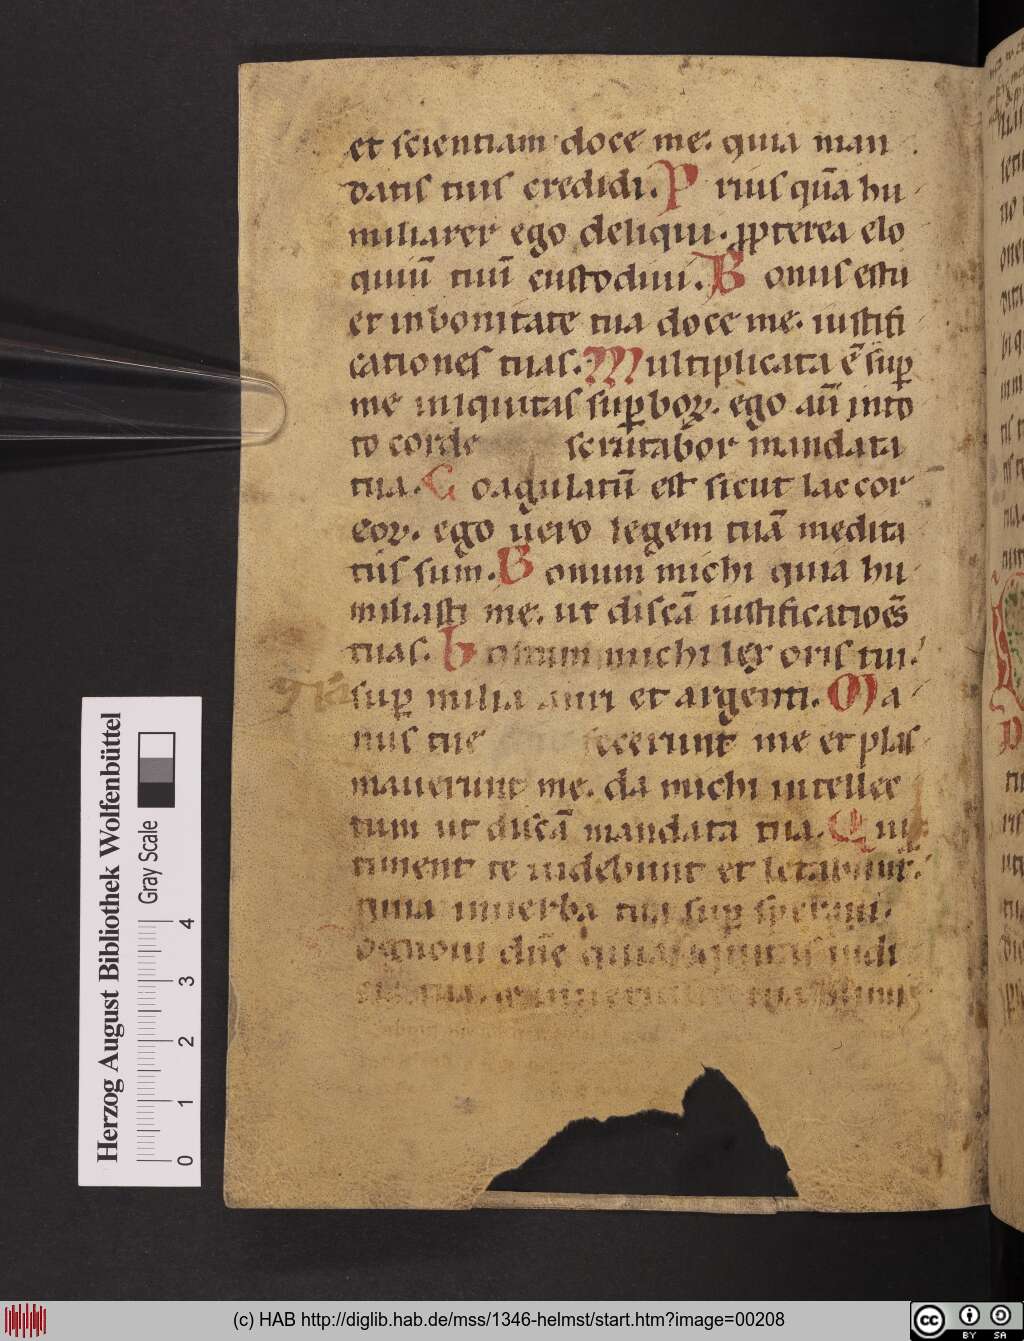 et scientiam doce me. quia man
datis tuis credidi. Prius qua̅ hu
miliarer ego deliqui. ꝓpterea elo
quiu̅ tuu̅ custodiui. Bonus es tu
et in bonitate tua doce me. iustifi
cationes tuas. Multiplicata e̅ suꝑ
me iniquitas suꝑboꝝ. ego au̅ in to
to corde scrutabor mandata
tua. Coagulatu̅ est sicut lac cor
eoꝝ. ego uero legem tua̅ medita
tus sum. Bonum michi quia hu
miliasti me. ut disca̅ iustificatio̅es
tuas. Bonum michi lex oris tui.
suꝑ milia auri et argenti. Ma
nus tue fecerunt me et plas
mauerunt me. da michi intellec
tum ut disca̅ mandata tua. Qui
timent te uidebunt et letabunt᷑.
quia in uerba tua suꝑ speraui.
ognoui dn̅e quia equitas iudi
tua.
Herzog August Bibliothek Wolfenbüttel
Gray Scale
0 1 2 3 4
(c) HAB http://diglib.hab.de/mss/1346-helmst/start.htm?image=00208
cc BY SA